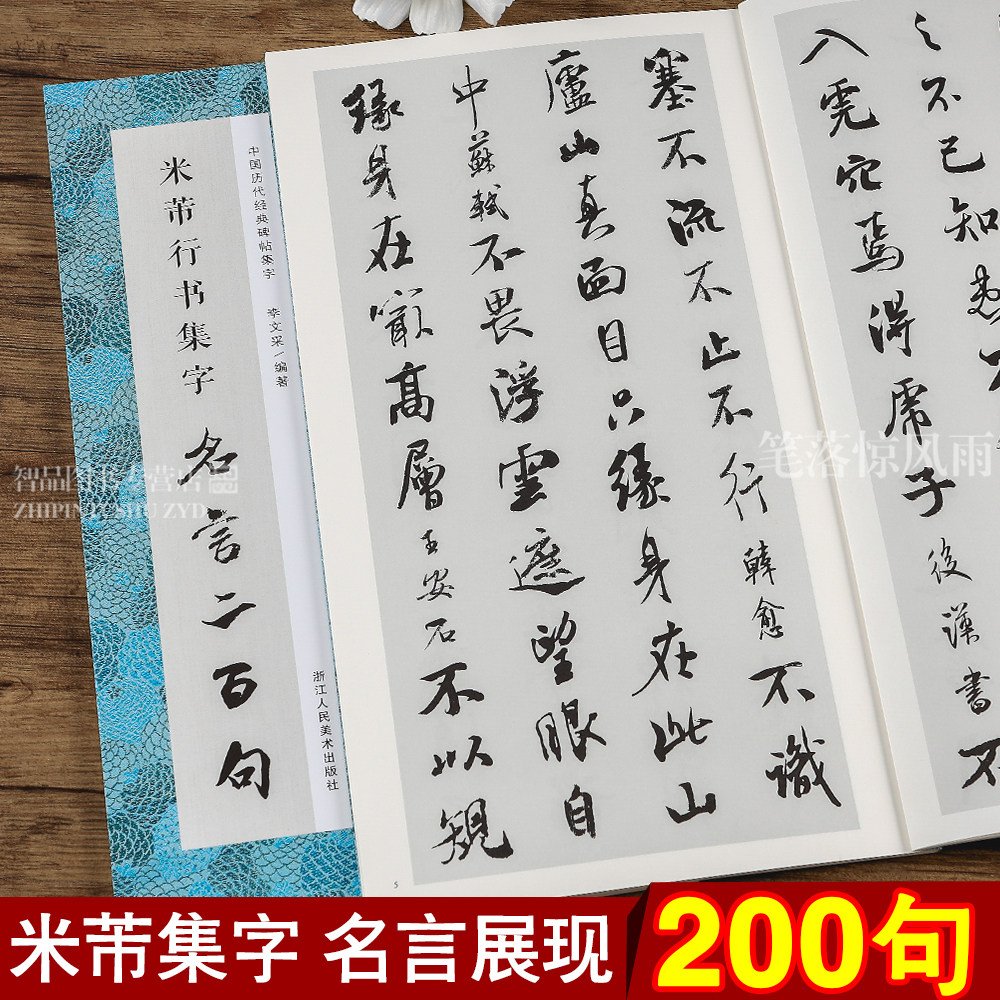 之不已知
入虎穴焉得虎子後漢書不
塞不流不止不行韓愈不識
廬山真面目只緣身在此山
中蘇軾不畏浮雲遮望眼自
緣身在最高層王安石不以規
5
中国历代经典碑帖集字 李文采/编著
浙江人民美术出版社
米芾行书集字 名言二百句
智品图书专营店
ZHIPINTUSHU ZYD
笔落惊风雨
米芾集字 名言展现 200句